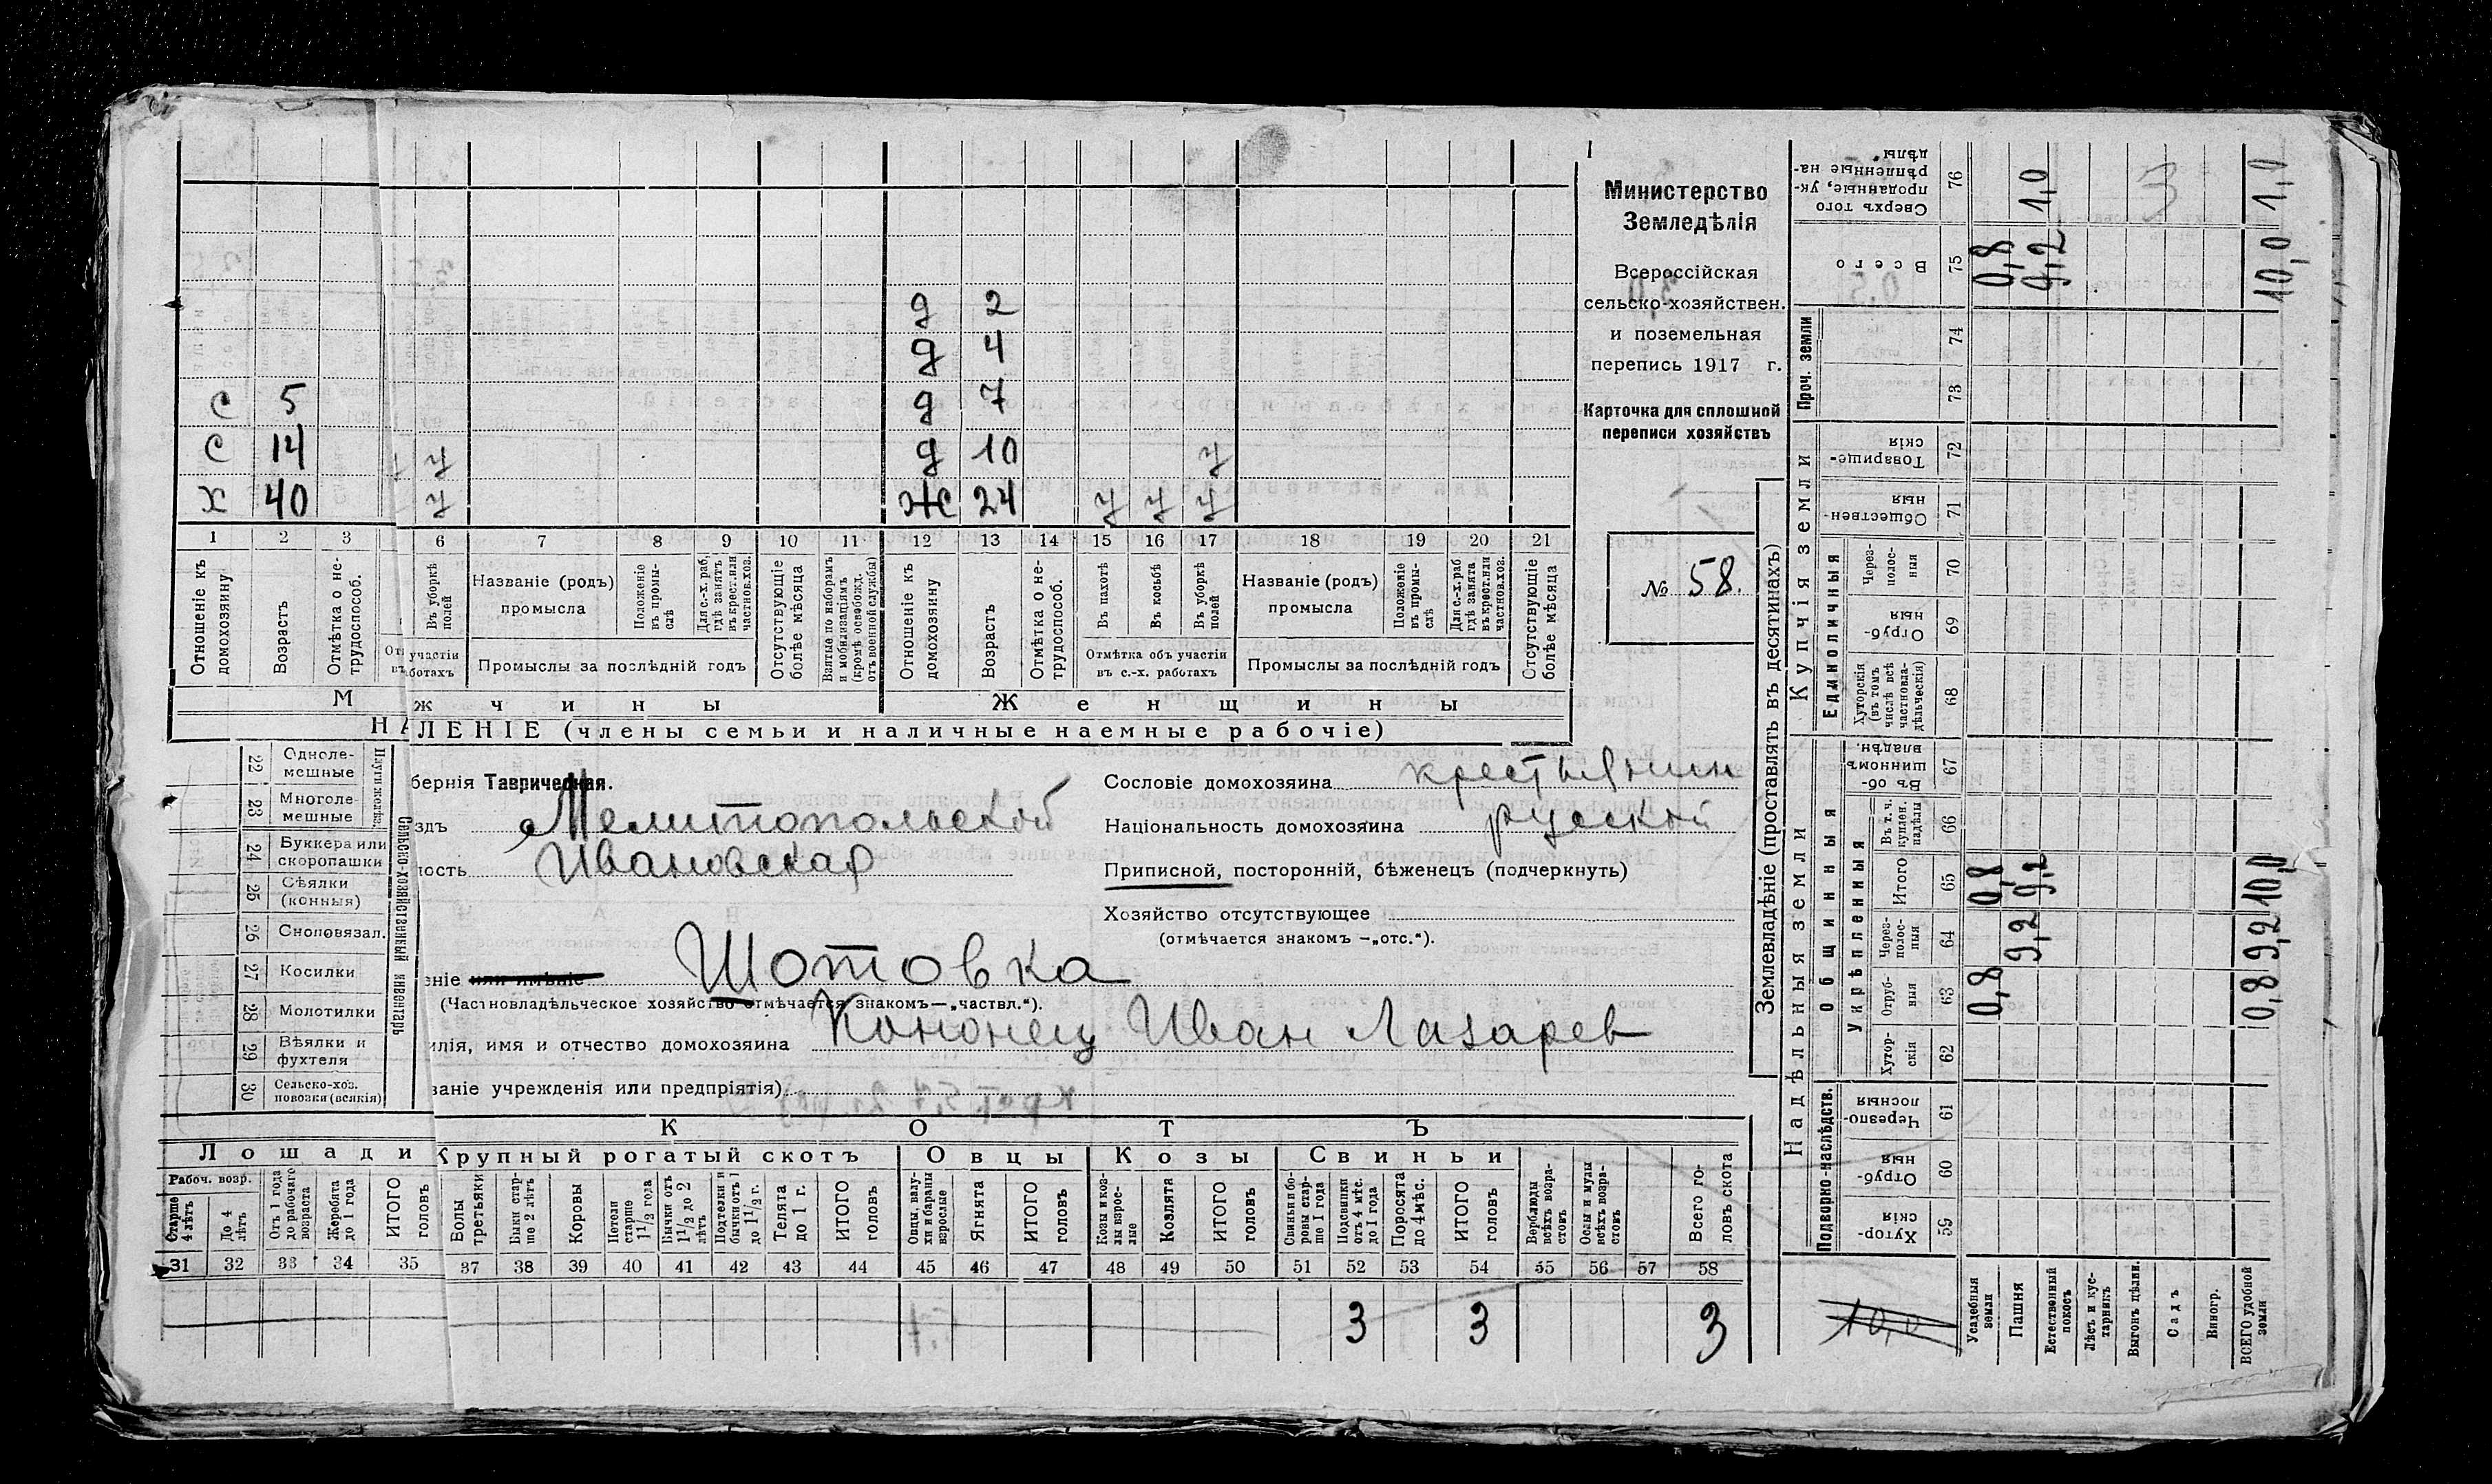 Министерство
Земледѣлія
Всероссійская
сельско-хозяйствен.
и поземельная
перепись 1917 г.
Карточка для сплошной
переписи хозяйствъ
№ 58.
д 2
д 4
с 5 д 7
с 14 у д 10 у
х 40 у ж 24 у у у
1 2 3 6 7 8 9 10 11 12 13 14 15 16 17 18 19 20 21
Отношеніе къ домохозяину
Возрастъ
Отмѣтка о не-трудоспособ.
Въ уборкѣ полей
участіи
ботахъ
Названіе (родъ) промысла
Положеніе въ промы-слѣ
Для с.-х. раб. гдѣ занятъ въ крест. или частнов. хоз.
Промыслы за послѣдній годъ
Отсутствующіе болѣе мѣсяца
Взятые по наборамъ и мобилизаціямъ (кромѣ освобожд. отъ военной службы)
Отношеніе къ домохозяину
Возрастъ
Отмѣтка о не-трудоспособ.
Въ пахотѣ
Въ косьбѣ
Въ уборкѣ полей
Отмѣтка объ участіи
въ с.-х. работахъ
Названіе (родъ) промысла
Положеніе въ промы-слѣ
Для с.-х. раб. гдѣ занята въ крест. или частнов. хоз.
Промыслы за послѣдній годъ
Отсутствующіе болѣе мѣсяца
М жчины Женщины
НА ЛЕНІЕ (члены семьи и наличные наемные рабочіе)
22 Одноле-мешные
23 Многоле-мешные
24 Буккера или скоропашки
25 Сѣялки (конныя)
26 Сноповязал.
27 Косилки
28 Молотилки
29 Вѣялки и фухтеля
30 Сельско-хоз. повозки (всякія)
Сельско-хозяйственный инвентарь
берня Таврическая.
здъ Мелитопольской
ость Ивановская
Сословіе домохозяина крестьянин
Національность домохозяина руской
Приписной, посторонній, бѣженецъ (подчеркнуть)
Хозяйство отсутствующее
(отмѣчается знакомъ —„отс.“).
еніе или имѣніе Шотовка
(Частновладѣльческое хозяйство отмѣчается знакомъ—„частвл.“).
илія, имя и отчество домохозяина Кононец Иван Лазарев
ваніе учрежденія или предпріятія)
КОТЪ
Лошади Крупный рогатый скотъ Овцы Козы Свиньи
Рабоч. возр.
Старше 4 лѣтъ
До 4 лѣтъ
Отъ 1 года до рабочаго возраста
Жеребята до 1 года
ИТОГО головъ
Волы третьяки
Быки стар-ше 2 лѣтъ
Коровы
Нетели старше 1½ года
Бычки отъ 1½ до 2 лѣтъ
Подтелки и бычки отъ 1 до 1½ г.
Телята до 1 г.
ИТОГО головъ
Овцы, валу-хи и бараны взрослые
Ягнята
ИТОГО головъ
Козы и коз-лы взрос-лые
Козлята
ИТОГО головъ
Свиньи и бо-ровы стар-ше 1 года
Подсвинки отъ 4 мѣс. до 1 года
Поросята до 4 мѣс.
ИТОГО головъ
Верблюды всѣхъ возра-стовъ
Ослы и мулы всѣхъ возра-стовъ
Всего го-ловъ скота
31 32 33 34 35 37 38 39 40 41 42 43 44 45 46 47 48 49 50 51 52 53 54 55 56 57 58
3 3 3
Землевладѣніе (проставлять въ десятинахъ)
Надѣльныя земли
Купчія земли
Проч. земли
Сверхъ того проданные, ук-рѣпленные на-дѣлы 76 1,0 1,0
Всего 75 0,8 9,2 10,0
74
73
Товарище-скія 72
Обществен-ныя 71
Единоличныя
Через-полос-ныя 70
Отруб-ныя 69
Хуторскія (въ томъ числѣ всѣ частновла-дѣльческія) 68
Общинныя
Въ об-щинномъ владѣн. 67
Укрѣпленныя
Въ т. ч. куплен. надѣлы 66
Итого 65 0,8 9,2 10,0
Через-полос-ныя 64 9,2 9,2
Отруб-ныя 63 0,8 0,8
Хутор-скія 62
Подворно-наслѣдств.
Черезпо-лосныя 61
Отруб-ныя 60
Хутор-скія 59
10,0
Усадебныя земли
Пашня
Естественный покосъ
Лѣсъ и кус-тарникъ
Выгонъ цѣлин.
Садъ
Виногр.
ВСЕГО удобной земли